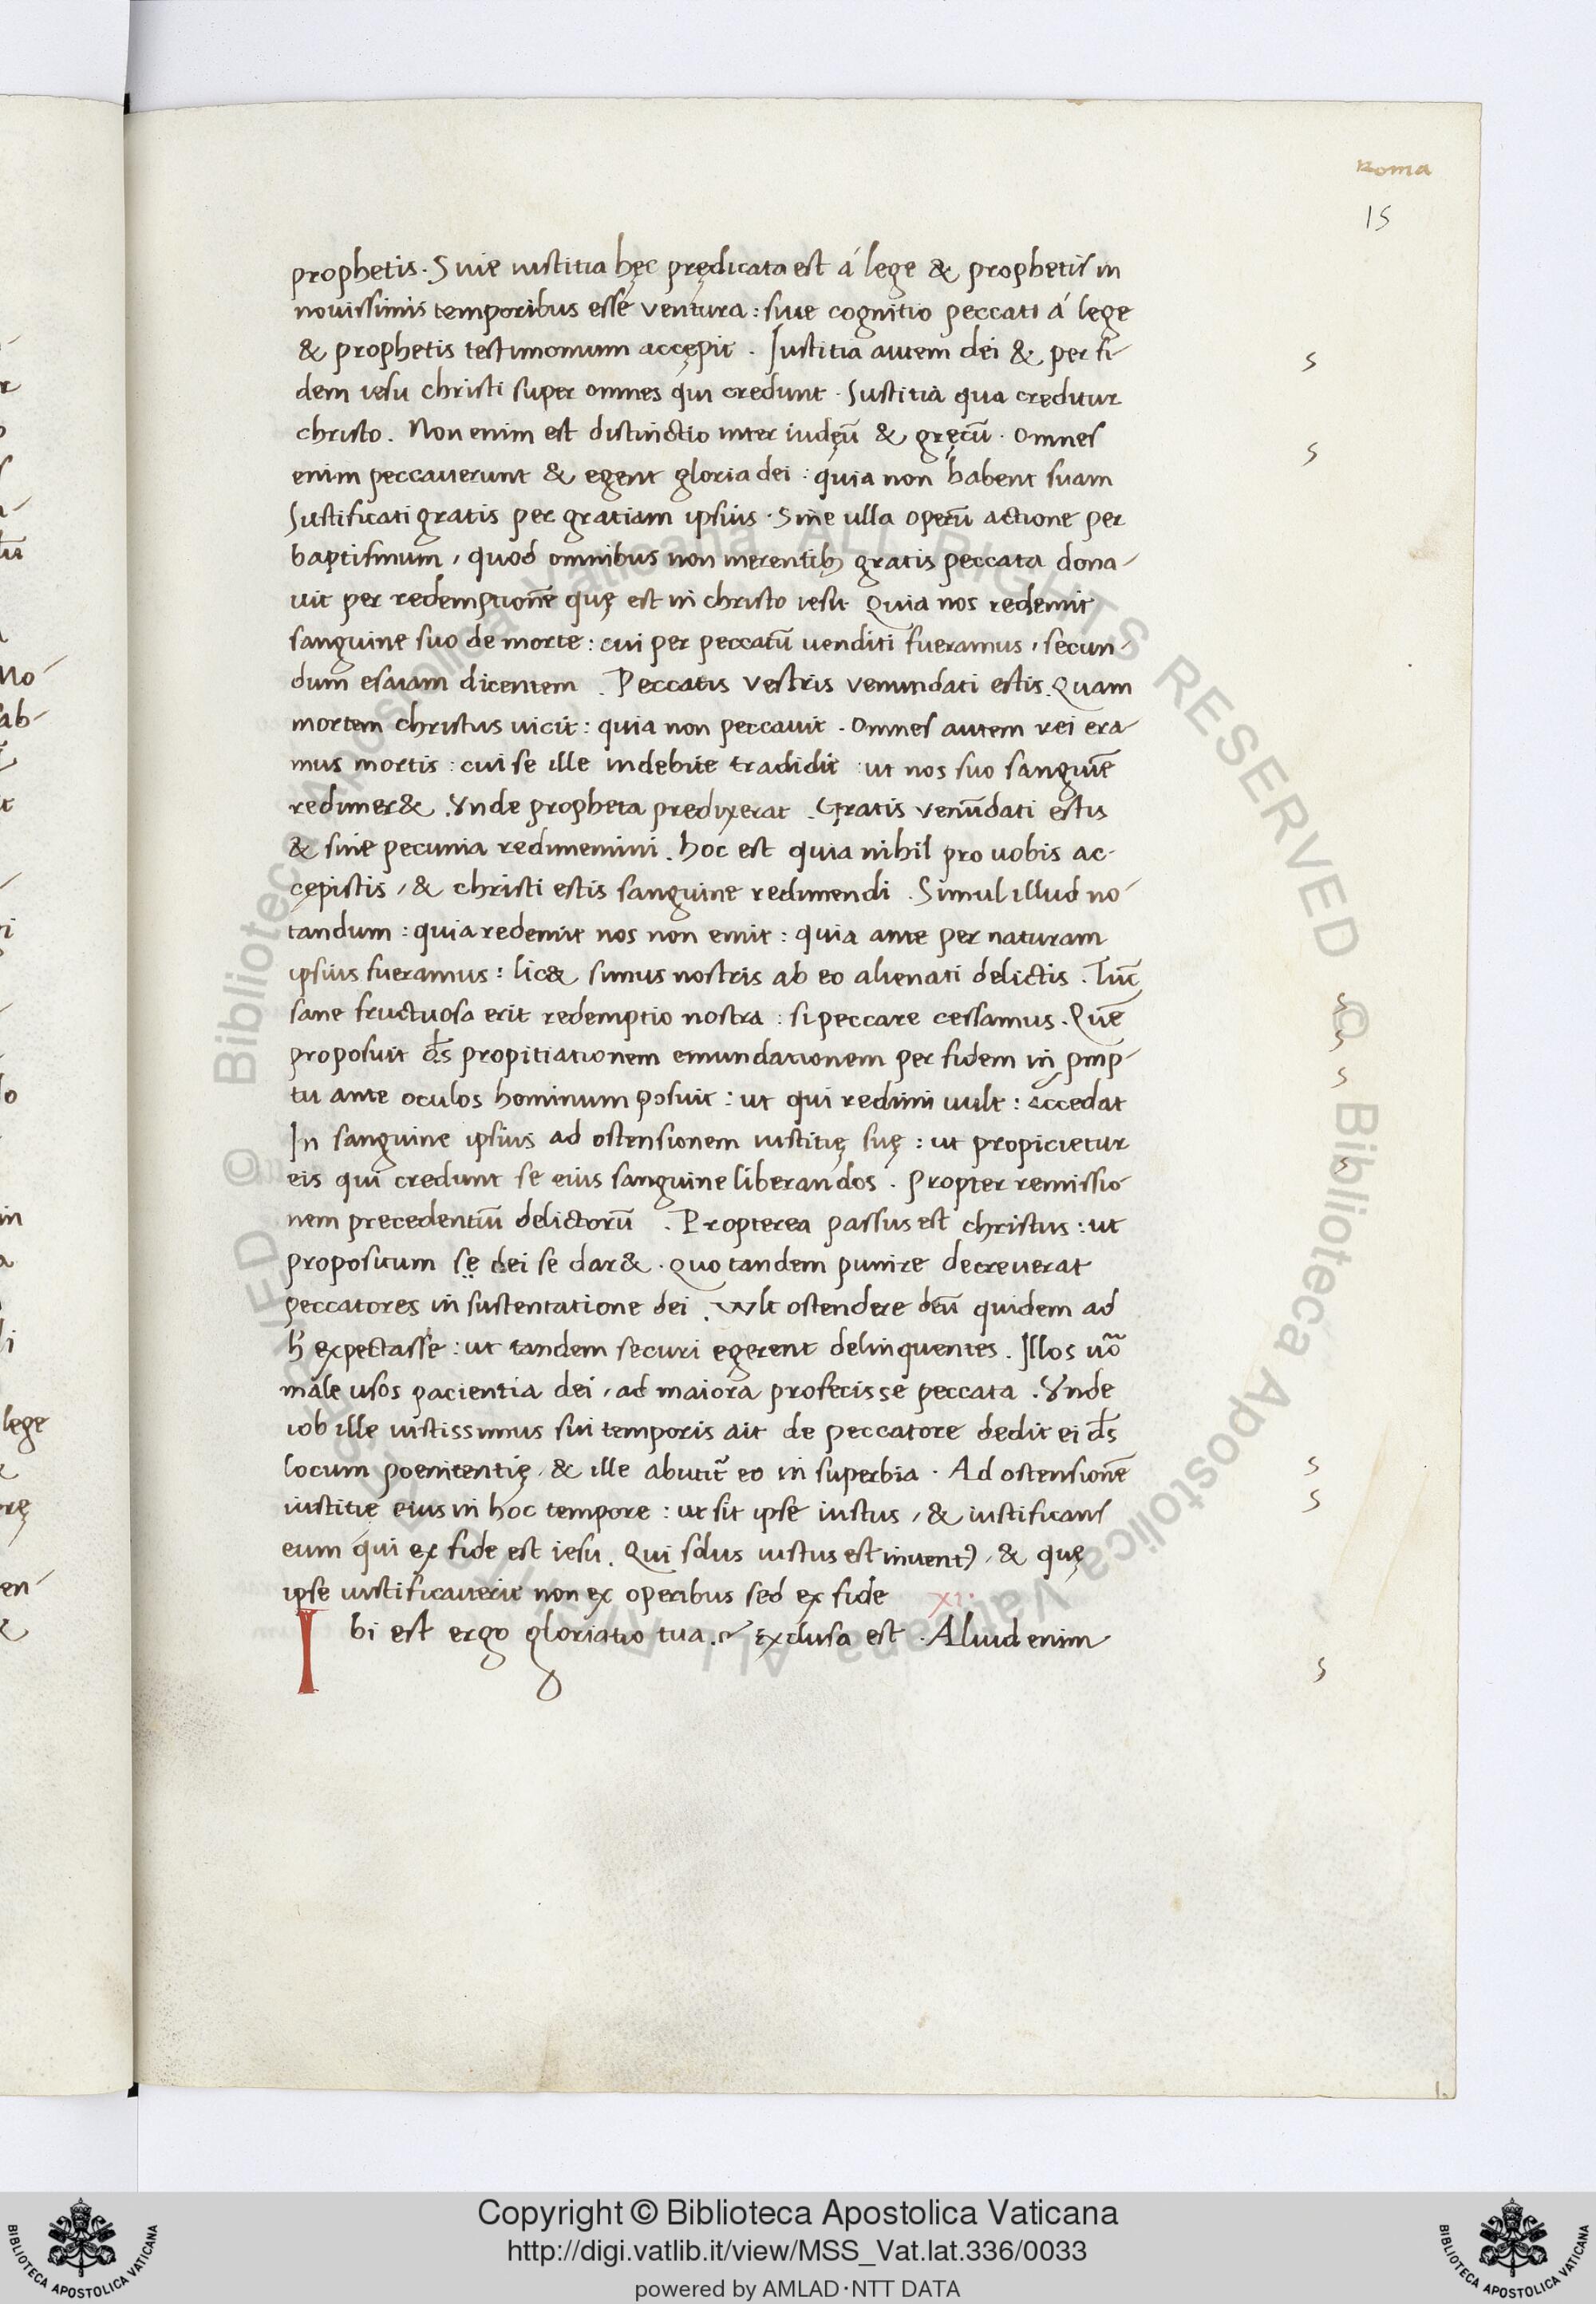 Roma
15
prophetis. Siue iustitia hęc prędicata est á lege & prophetis in
nouissimis temporibus esse ventura: siue cognitio peccati á lege
& prophetis testimonium accępit. Iustitia autem dei & per fi-
dem iesu christi super omnes qui credunt. Iustitia qua creditur
christo. Non enim est distinctio inter iudęū & gręcū. Omnes
enim peccauerunt & egent gloria dei: quia non habent suam
Iustificati gratis per gratiam ipsius. Sine ulla operū actione per
baptismum, quod omnibus non merentibꝫ gratis peccata dona-
uit per redemptionē quę est in christo iesu Quia nos redemit
sanguine suo de morte: cui per peccatū uenditi fueramus, secun-
dum esaiam dicentem. Peccatis vestris venundati estis. Quam
mortem christus uicit: quia non peccauit. Omnes autem rei era-
mus mortis: cui se ille indebite tradidit: ut nos suo sanguinē
redimer&. Vnde propheta predixerat. Gratis venūdati estis
& sine pecunia redimemini. hoc est quia nihil pro uobis ac-
cępistis, & christi estis sanguine redimendi. Simul illud no-
tandum: quia redemit nos non emit: quia ante per naturam
ipsius fueramus: lic& simus nostris ab eo alienati delictis. Tūc
sane fructuosa erit redemptio nostra: si peccare cessamus. Quē
proposuit d̄s propitiationem emundationem per fidem in pmp-
tu ante oculos hominum posuit: ut qui redimi uult: accedat
In sanguine ipsius ad ostensionem iustitię suę: ut propicietur
eis qui credunt se eius sanguine liberandos. Propter remissio-
nem precedentiū delictorū. Propterea passus est christus: ut
propositum sę dei se dar&. quo tandem punire decreuerat
peccatores in sustentatione dei. Vult ostendere deū quidem ad
h̄ expectasse: ut tandem securi egerent delinquentes. Illos uō
male usos pacientia dei, ad maiora profecisse peccata. Vnde
iob ille iustissimus sui temporis ait de peccatore dedit ei d̄s
locum poenitentię, & ille abutit̄ eo in superbia. Ad ostensionē
iustitię eius in hoc tempore: ut sit ipse iustus, & iustificans
eum qui ex fide est iesu. Qui solus iustus est inuent), & quę
ipse iustificauerit non ex operibus sed ex fide XI.
Ibi est ergo gloriatio tua.~ Exclusa est. Aliud enim
Copyright © Biblioteca Apostolica Vaticana
http://digi.vatlib.it/view/MSS_Vat.lat.336/0033
powered by AMLAD·NTT DATA